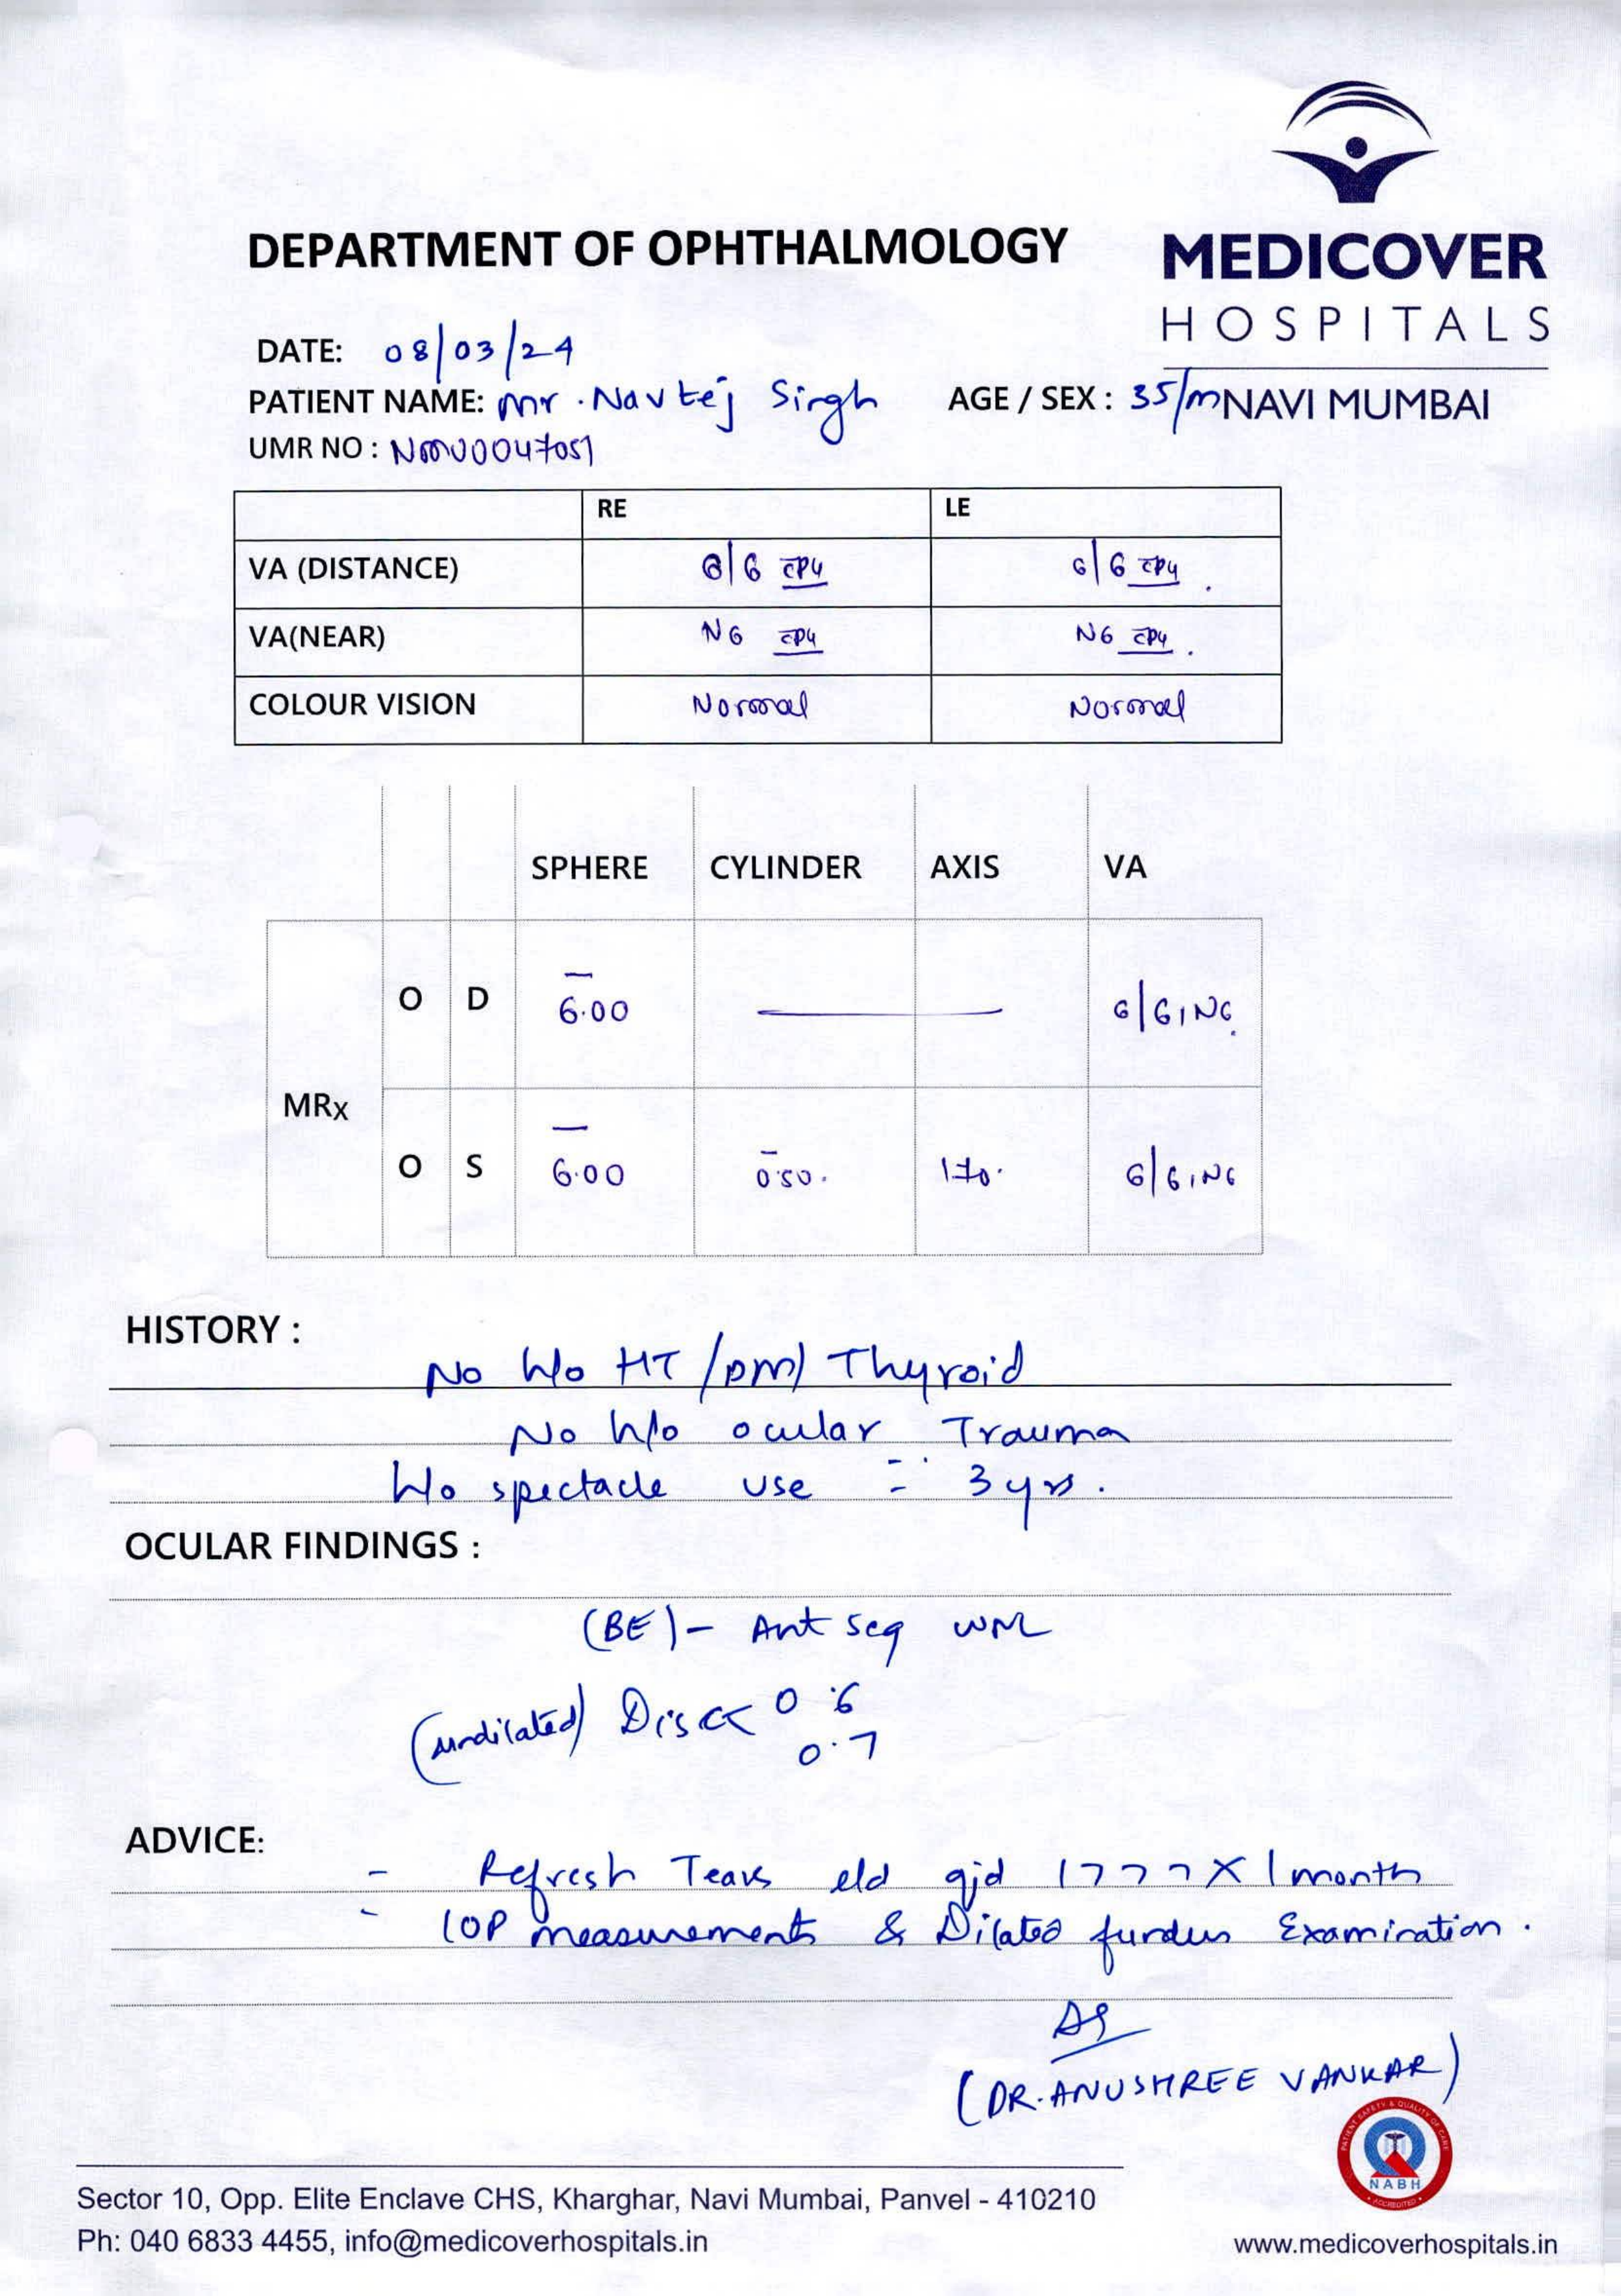 DEPARTMENT OF OPHTHALMOLOGY
MEDICOVER
HOSPITALS
NAVI MUMBAI
DATE: 08/03/24
PATIENT NAME: Mr. Navtej Singh AGE / SEX : 35/M
UMR NO : NMU0047051
RE LE
VA (DISTANCE) 6/6 c̄PG 6/6 c̄PG.
VA(NEAR) N6 c̄PG N6 c̄PG.
COLOUR VISION Normal Normal
SPHERE CYLINDER AXIS VA
O D - 6.00 — 6/6, N6.
MRx
O S - 6.00 - 0.50. 170. 6/6, N6
HISTORY :
No h/o HT / DM / Thyroid
No h/o ocular Trauma
h/o spectacle use - 3 yrs.
OCULAR FINDINGS :
(BE) - Ant seg WNL
(undilated) Disc < 0.6
0.7
ADVICE:
- Refresh Tears e/d qid 1777 X 1 month
- IOP measurements & Dilated fundus Examination.
(DR. ANUSHREE VANKAR)
PATIENT SAFETY & QUALITY OF CARE
NABH
ACCREDITED
Sector 10, Opp. Elite Enclave CHS, Kharghar, Navi Mumbai, Panvel - 410210
Ph: 040 6833 4455, info@medicoverhospitals.in
www.medicoverhospitals.in